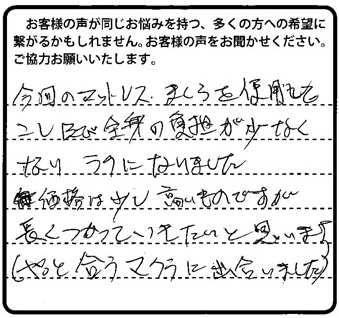 お客様の声が同じお悩みを持つ、多くの方への希望に
繋がるかもしれません。お客様の声をお聞かせください。
ご協力お願いいたします。
今回のマットレス.まくらを使用して
コシ及び全身の負担が少なく
なり ラクになりました
価格は少し高いものですが
長くつかっていきたいと思います
(やっと合うマクラに出合いました)